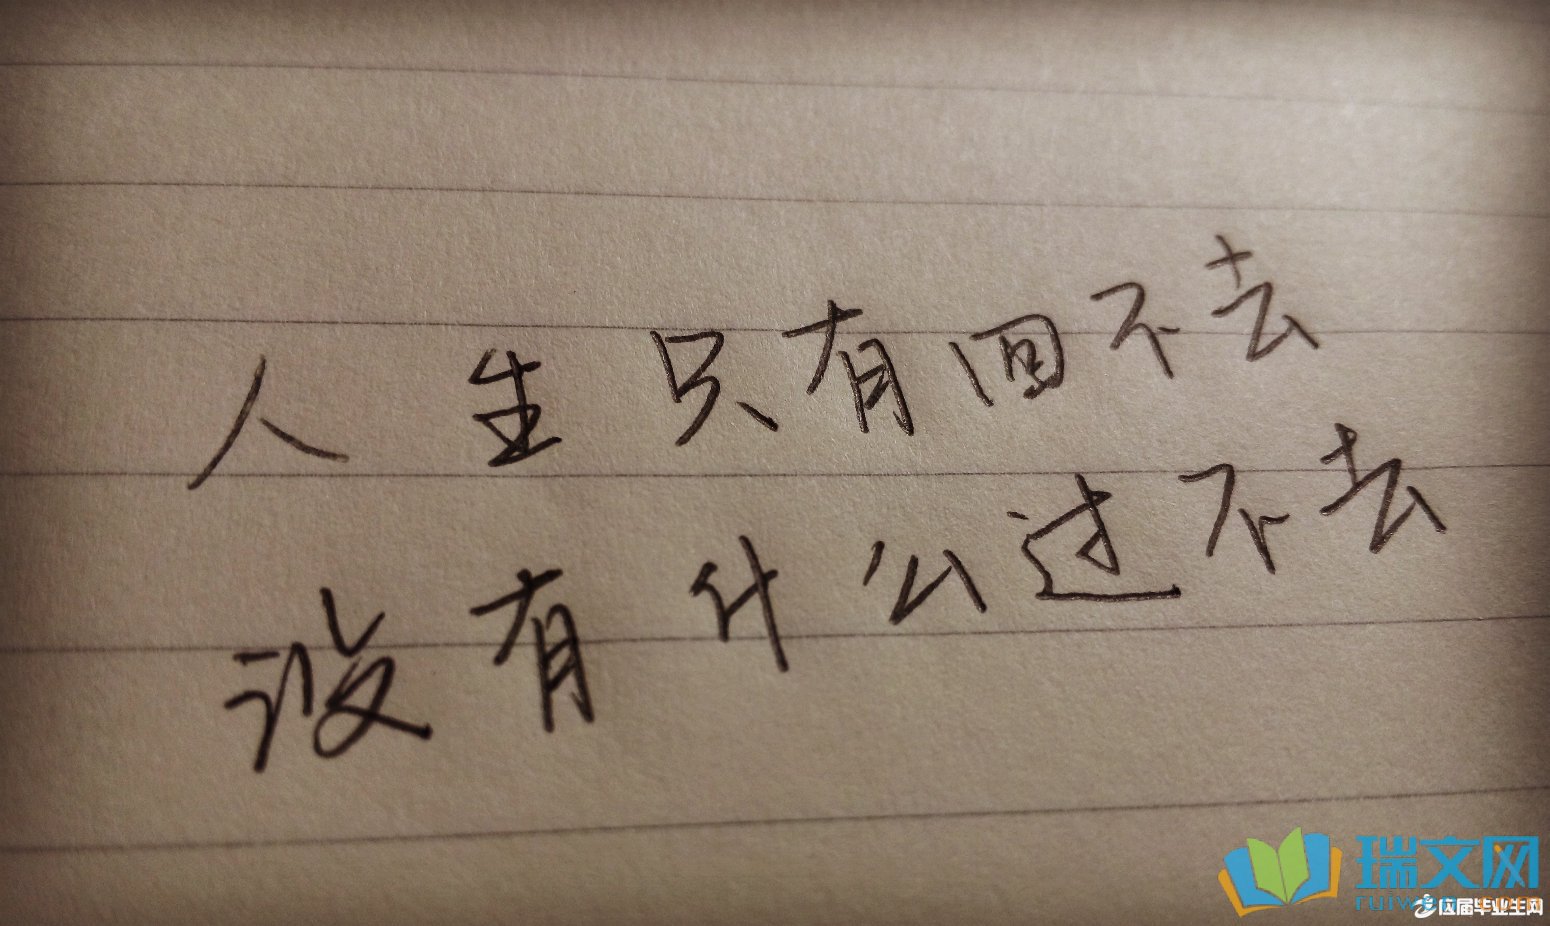 人生只有回不去
没有什么过不去
瑞文网
ruiwen.com
应届毕业生网